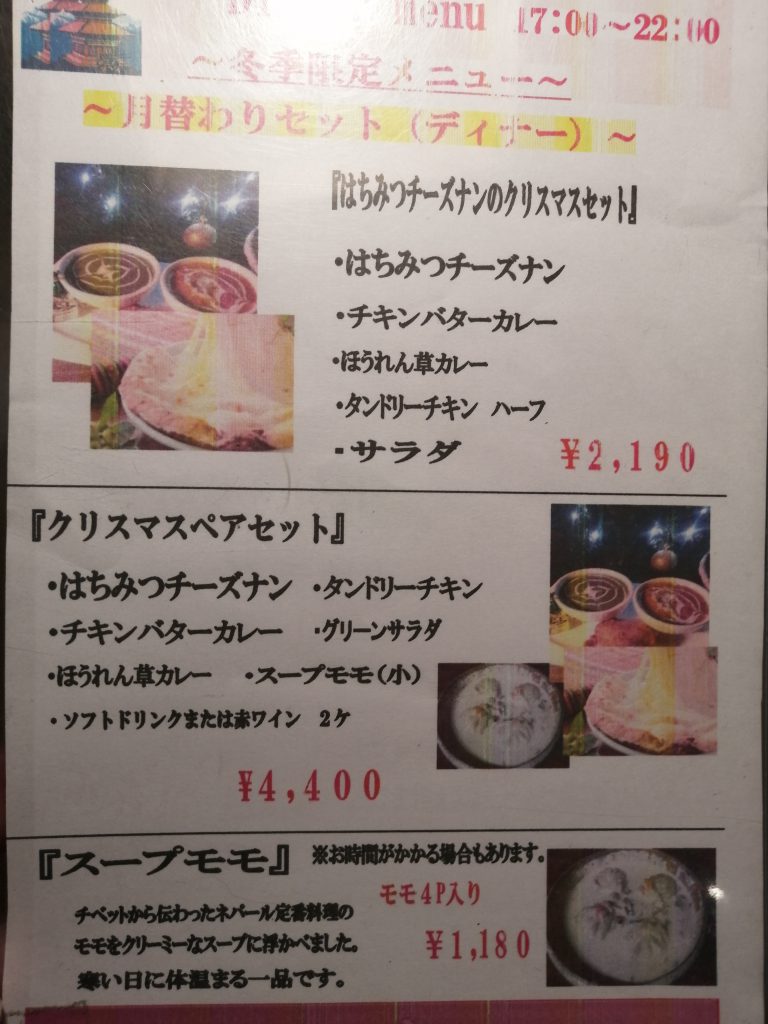 menu 17:00～22:00
～冬季限定メニュー～
～月替わりセット（ディナー）～
『はちみつチーズナンのクリスマスセット』
・はちみつチーズナン
・チキンバターカレー
・ほうれん草カレー
・タンドリーチキン ハーフ
・サラダ ¥2,190
『クリスマスペアセット』
・はちみつチーズナン ・タンドリーチキン
・チキンバターカレー ・グリーンサラダ
・ほうれん草カレー ・スープモモ（小）
・ソフトドリンクまたは赤ワイン 2ケ
¥4,400
『スープモモ』 ※お時間がかかる場合もあります。
モモ4P入り
チベットから伝わったネパール定番料理の
モモをクリーミーなスープに浮かべました。
¥1,180
寒い日に体温まる一品です。